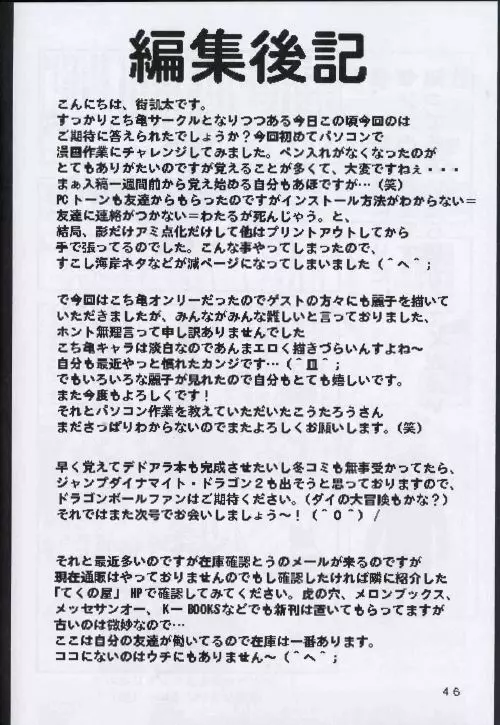 編集後記
こんにちは、街凱太です。
すっかりこち亀サークルとなりつつある今日この頃今回のは
ご期待に答えられたでしょうか?今回初めてパソコンで
漫画作業にチャレンジしてみました。ペン入れがなくなったのが
とてもありがたいのですが覚えることが多くて、大変ですねぇ・・・
まぁ入稿一週間前から覚え始める自分もあほですが…(笑)
PCトーンも友達からもらったのですがインストール方法がわからない=
友達に連絡がつかない=わたるが死んじゃう。と、
結局、影だけアミ点化だけして他はプリントアウトしてから
手で張ってるのでした。こんな事やってしまったので、
すこし海岸ネタなどが減ページになってしまいました(^へ^;
で今回はこち亀オンリーだったのでゲストの方々にも麗子を描いて
いただきましたが、みんながみんな難しいと言っておりました、
ホント無理言って申し訳ありませんでした
こち亀キャラは淡白なのであんまエロく描きづらいんすよね~
自分も最近やっと慣れたカンジです…(^皿^;
でもいろいろな麗子が見れたので自分もとても嬉しいです。
また今度もよろしくです!
それとパソコン作業を教えていただいたこうたろうさん
まださっぱりわからないのでまたよろしくお願いします。(笑)
早く覚えてデドアラ本も完成させたいし冬コミも無事受かってたら、
ジャンプダイナマイト・ドラゴン2も出そうと思っておりますので、
ドラゴンボールファンはご期待ください。(ダイの大冒険もかな?)
それではまた次号でお会いしましょう~!(^O^)/
それと最近多いのですが在庫確認とうのメールが来るのですが
現在通販はやっておりませんのでもし確認したければ隣に紹介した
『てくの屋』HPで確認してみてください。虎の穴、メロンブックス、
メッセサンオー、K-BOOKSなどでも新刊は置いてもらってますが
古いのは微妙なので…
ここは自分の友達が働いてるので在庫は一番あります。
ココにないのはウチにもありません~(^へ^;
46